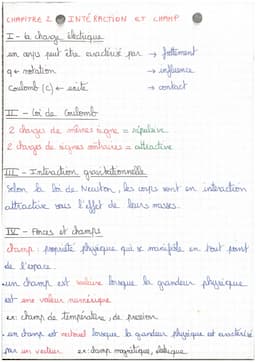 CHAPITRE 2 INTÉRACTION ET CHAMP
I - la charge électrique
un corps peut être caractérisé par → frottement
q ← notation → influence
Coulomb (C) ← unité → contact
II - Loi de Coulomb
2 charges de mêmes signes = répulsive
2 charges de signes contraires = attractive
III - Interaction gravitationnelle
Selon la loi de Newton, les corps sont en interaction
attractive sous l'effet de leurs masses.
IV - Forces et champs
champ : propriété physique qui se manifeste en tout point
de l'espace.
• un champ est scalaire lorsque la grandeur physique
est une valeur numérique
ex: champ de température, de pression
• un champ est vectoriel lorsque la grandeur physique est caractérisé
par un vecteur. ex: champ magnétique, électrique